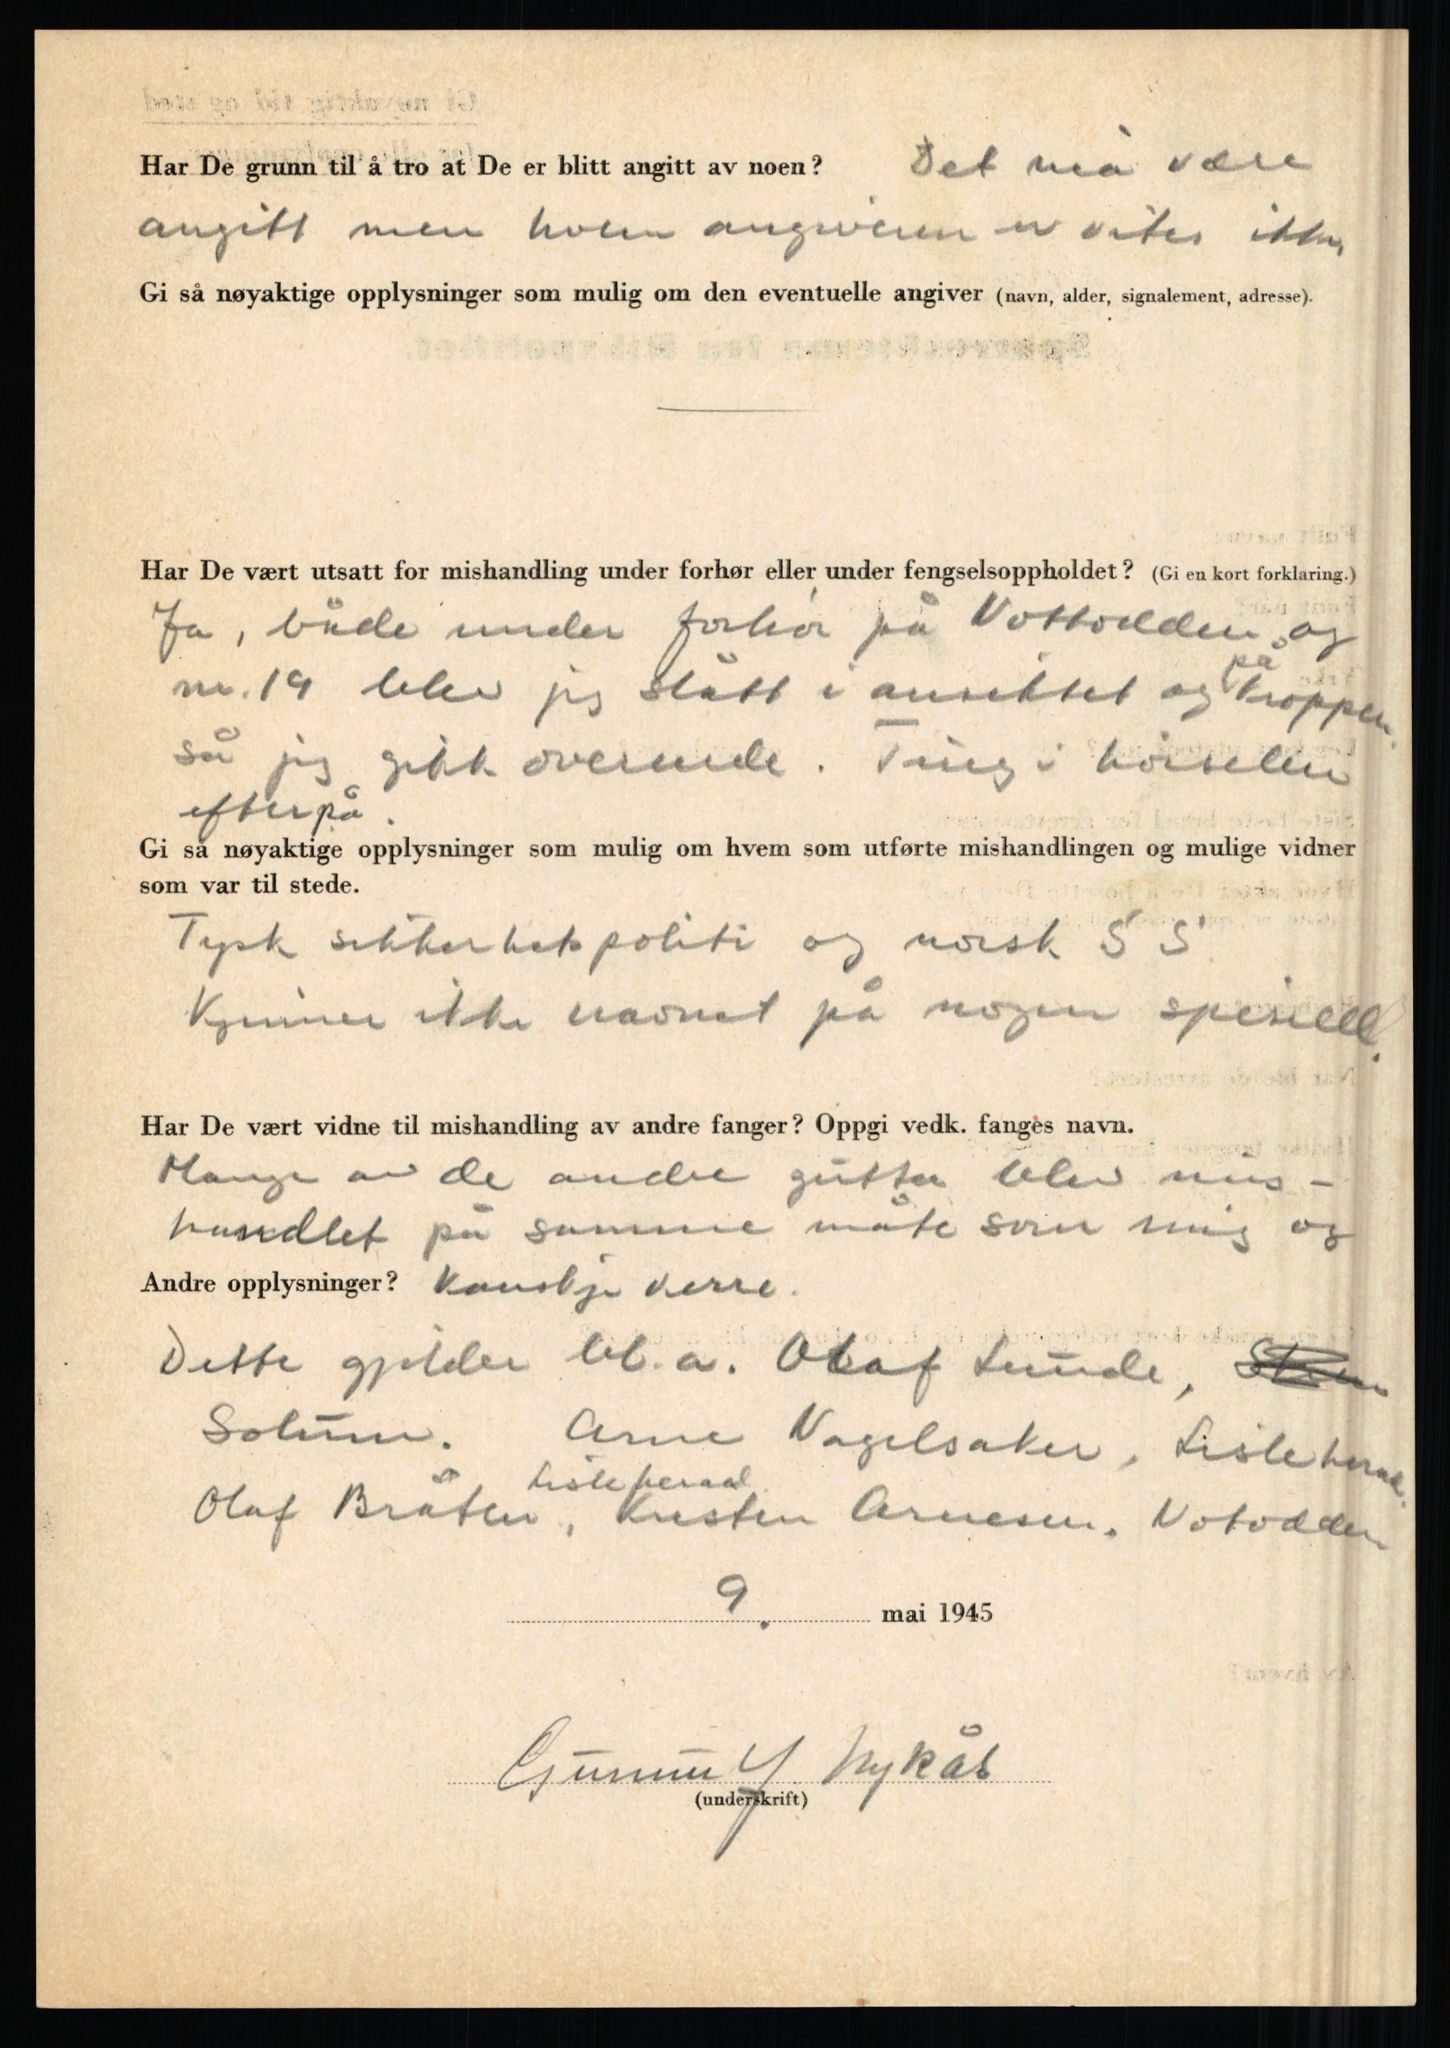 Har De grunn til å tro at De er blitt angitt av noen? Det må være
angitt men hvem angiveren er vites ikke,
Gi så nøyaktige opplysninger som mulig om den eventuelle angiver (navn, alder, signalement, adresse).
Har De vært utsatt for mishandling under forhør eller under fengselsoppholdet? (Gi en kort forklaring.)
Ja, både under forhør på Nottodden og
nr. 19 blev jeg slått i ansiktet og på kroppen.
så jeg gikk overende. Tung i hørselen
efterpå.
Gi så nøyaktige opplysninger som mulig om hvem som utførte mishandlingen og mulige vidner
som var til stede.
Tysk sikkerhetspoliti og norsk S S.
Kjenner ikke navnet på nogen spesiell.
Har De vært vidne til mishandling av andre fanger? Oppgi vedk. fanges navn.
Mange av de andre gutter blev mis-
handlet på samme måte som mig og
Andre opplysninger? kanskje verre.
Dette gjelder bl.a. Olaf Lunde,
Solum. Arne Nagelsaker, Lisleherad.
Olaf Bråten, Lisleherad. Kristen Arnesen. Notodden
9. mai 1945
Gunnu Y. Nykås
(underskrift)